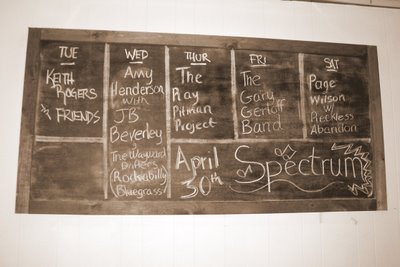 TUE
KEITH
ROGERS
+ FRIENDS
WED
Amy
Henderson
with
JB
Beverley
& The Wayward
Drifters
(Rockabilly
Bluegrass)
THUR
The
Ray
Pitman
Project
FRI
The
Gary
Gerloff
Band
SAT
Page
Wilson
w/
Reckless
Abandon
April
30th
Spectrum